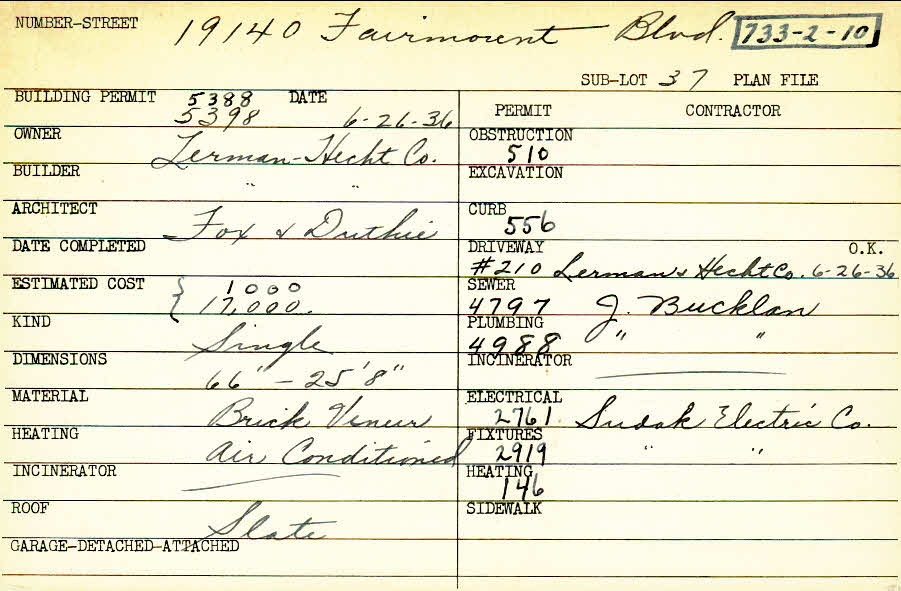 NUMBER-STREET 19140 Fairmount Blvd. 733-2-10
SUB-LOT 37 PLAN FILE
BUILDING PERMIT 5388 DATE
5398 6-26-36
OWNER Lerman-Hecht Co.
BUILDER " "
ARCHITECT Fox & Duthie
DATE COMPLETED
ESTIMATED COST { 1000
17,000.
KIND Single
DIMENSIONS 66" - 25'8"
MATERIAL Brick Veneer
HEATING Air Conditioned
INCINERATOR
ROOF Slate
GARAGE-DETACHED-ATTACHED
PERMIT CONTRACTOR
OBSTRUCTION
510
EXCAVATION
CURB
556
DRIVEWAY O.K.
#210 Lerman & Hecht Co. 6-26-36
SEWER
4797 J. Bucklan
PLUMBING
4988 " "
INCINERATOR
ELECTRICAL
2761 Sudak Electric Co.
FIXTURES
2919 " "
HEATING
146
SIDEWALK